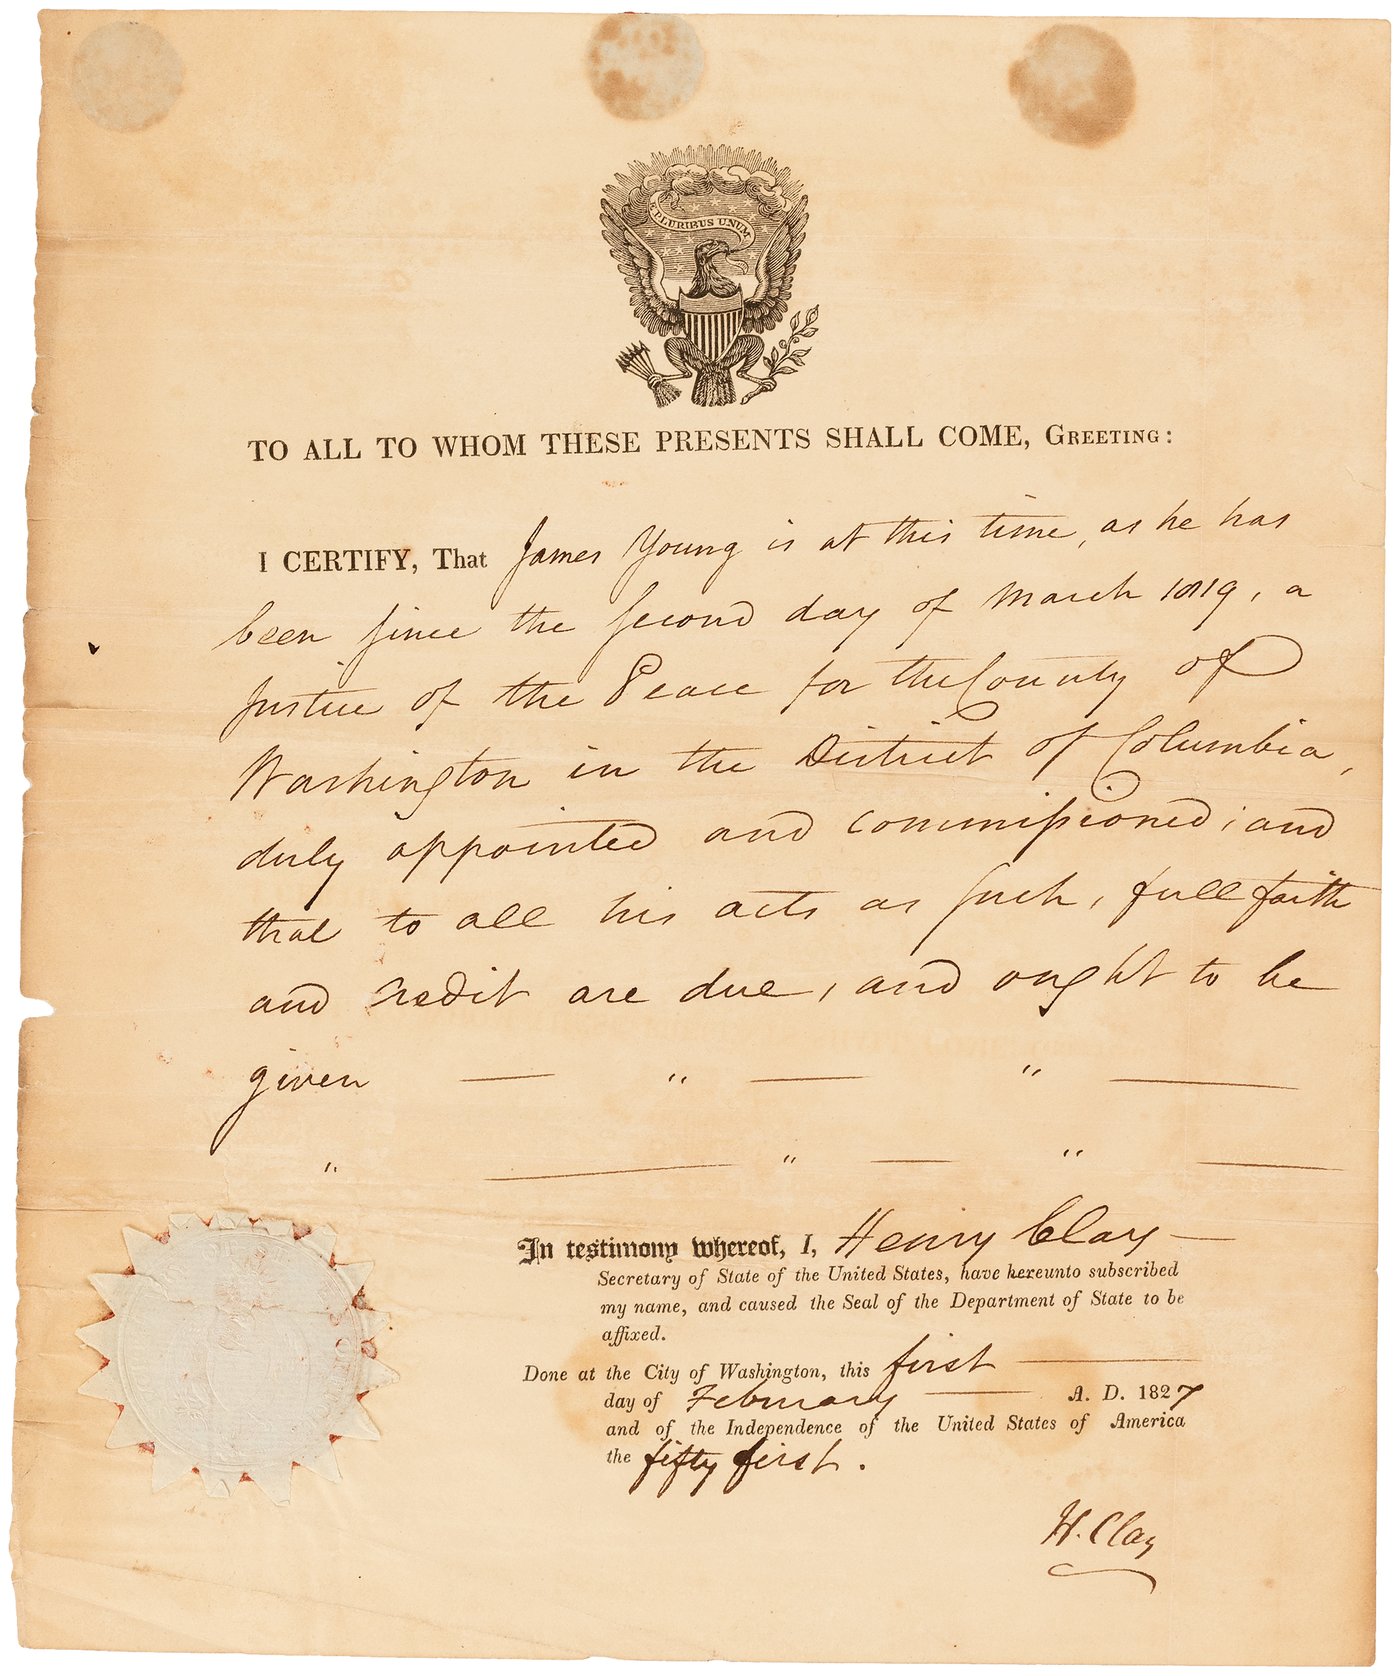 E PLURIBUS UNUM
TO ALL TO WHOM THESE PRESENTS SHALL COME, GREETING:
I CERTIFY, That James Young is at this time, as he has
been since the second day of March 1819, a
Justice of the Peace for the County of
Washington in the District of Columbia,
duly appointed and commissioned; and
that to all his acts as such, full faith
and credit are due, and ought to be
given — " — " —
" — " — " —
In testimony whereof, I, Henry Clay —
Secretary of State of the United States, have hereunto subscribed
my name, and caused the Seal of the Department of State to be
affixed.
Done at the City of Washington, this first —
day of February — A. D. 1827
and of the Independence of the United States of America
the fifty first.
H. Clay